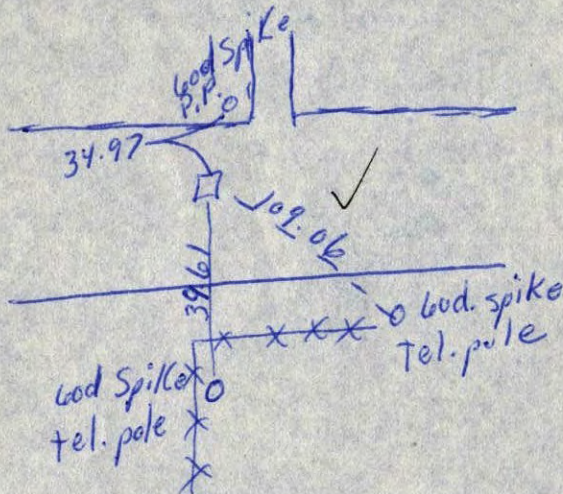 60d Spike
P.P.
34.97
109.06
39.61
60d. spike
Tel. pole
60d Spike
tel. pole